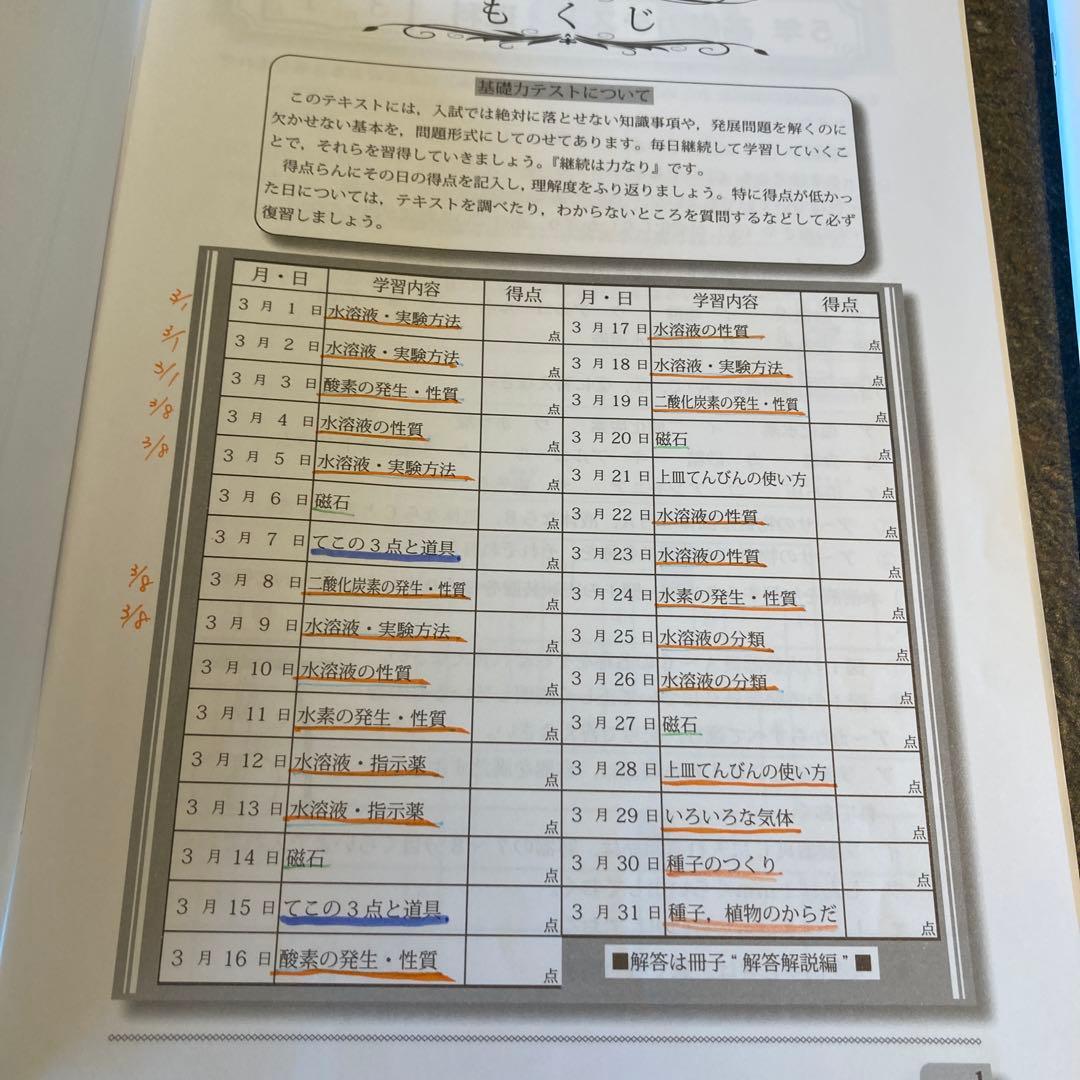 もくじ
基礎力テストについて
このテキストには，入試では絶対に落とせない知識事項や，発展問題を解くのに
欠かせない基本を，問題形式にしてのせてあります。毎日継続して学習していくこ
とで，それらを習得していきましょう。『継続は力なり』です。
得点らんにその日の得点を記入し，理解度をふり返りましょう。特に得点が低かっ
た日については，テキストを調べたり，わからないところを質問するなどして必ず
復習しましょう。
月・日 学習内容 得点
3/1 3月1日 水溶液・実験方法 点
3/1 3月2日 水溶液・実験方法 点
3/1 3月3日 酸素の発生・性質 点
3/8 3月4日 水溶液の性質 点
3/8 3月5日 水溶液・実験方法 点
3月6日 磁石 点
3月7日 てこの3点と道具 点
3/8 3月8日 二酸化炭素の発生・性質 点
3/8 3月9日 水溶液・実験方法 点
3月10日 水溶液の性質 点
3月11日 水素の発生・性質 点
3月12日 水溶液・指示薬 点
3月13日 水溶液・指示薬 点
3月14日 磁石 点
3月15日 てこの3点と道具 点
3月16日 酸素の発生・性質 点
月・日 学習内容 得点
3月17日 水溶液の性質 点
3月18日 水溶液・実験方法 点
3月19日 二酸化炭素の発生・性質 点
3月20日 磁石 点
3月21日 上皿てんびんの使い方 点
3月22日 水溶液の性質 点
3月23日 水溶液の性質 点
3月24日 水素の発生・性質 点
3月25日 水溶液の分類 点
3月26日 水溶液の分類 点
3月27日 磁石 点
3月28日 上皿てんびんの使い方 点
3月29日 いろいろな気体 点
3月30日 種子のつくり 点
3月31日 種子，植物のからだ 点
■解答は冊子“解答解説編”■
1